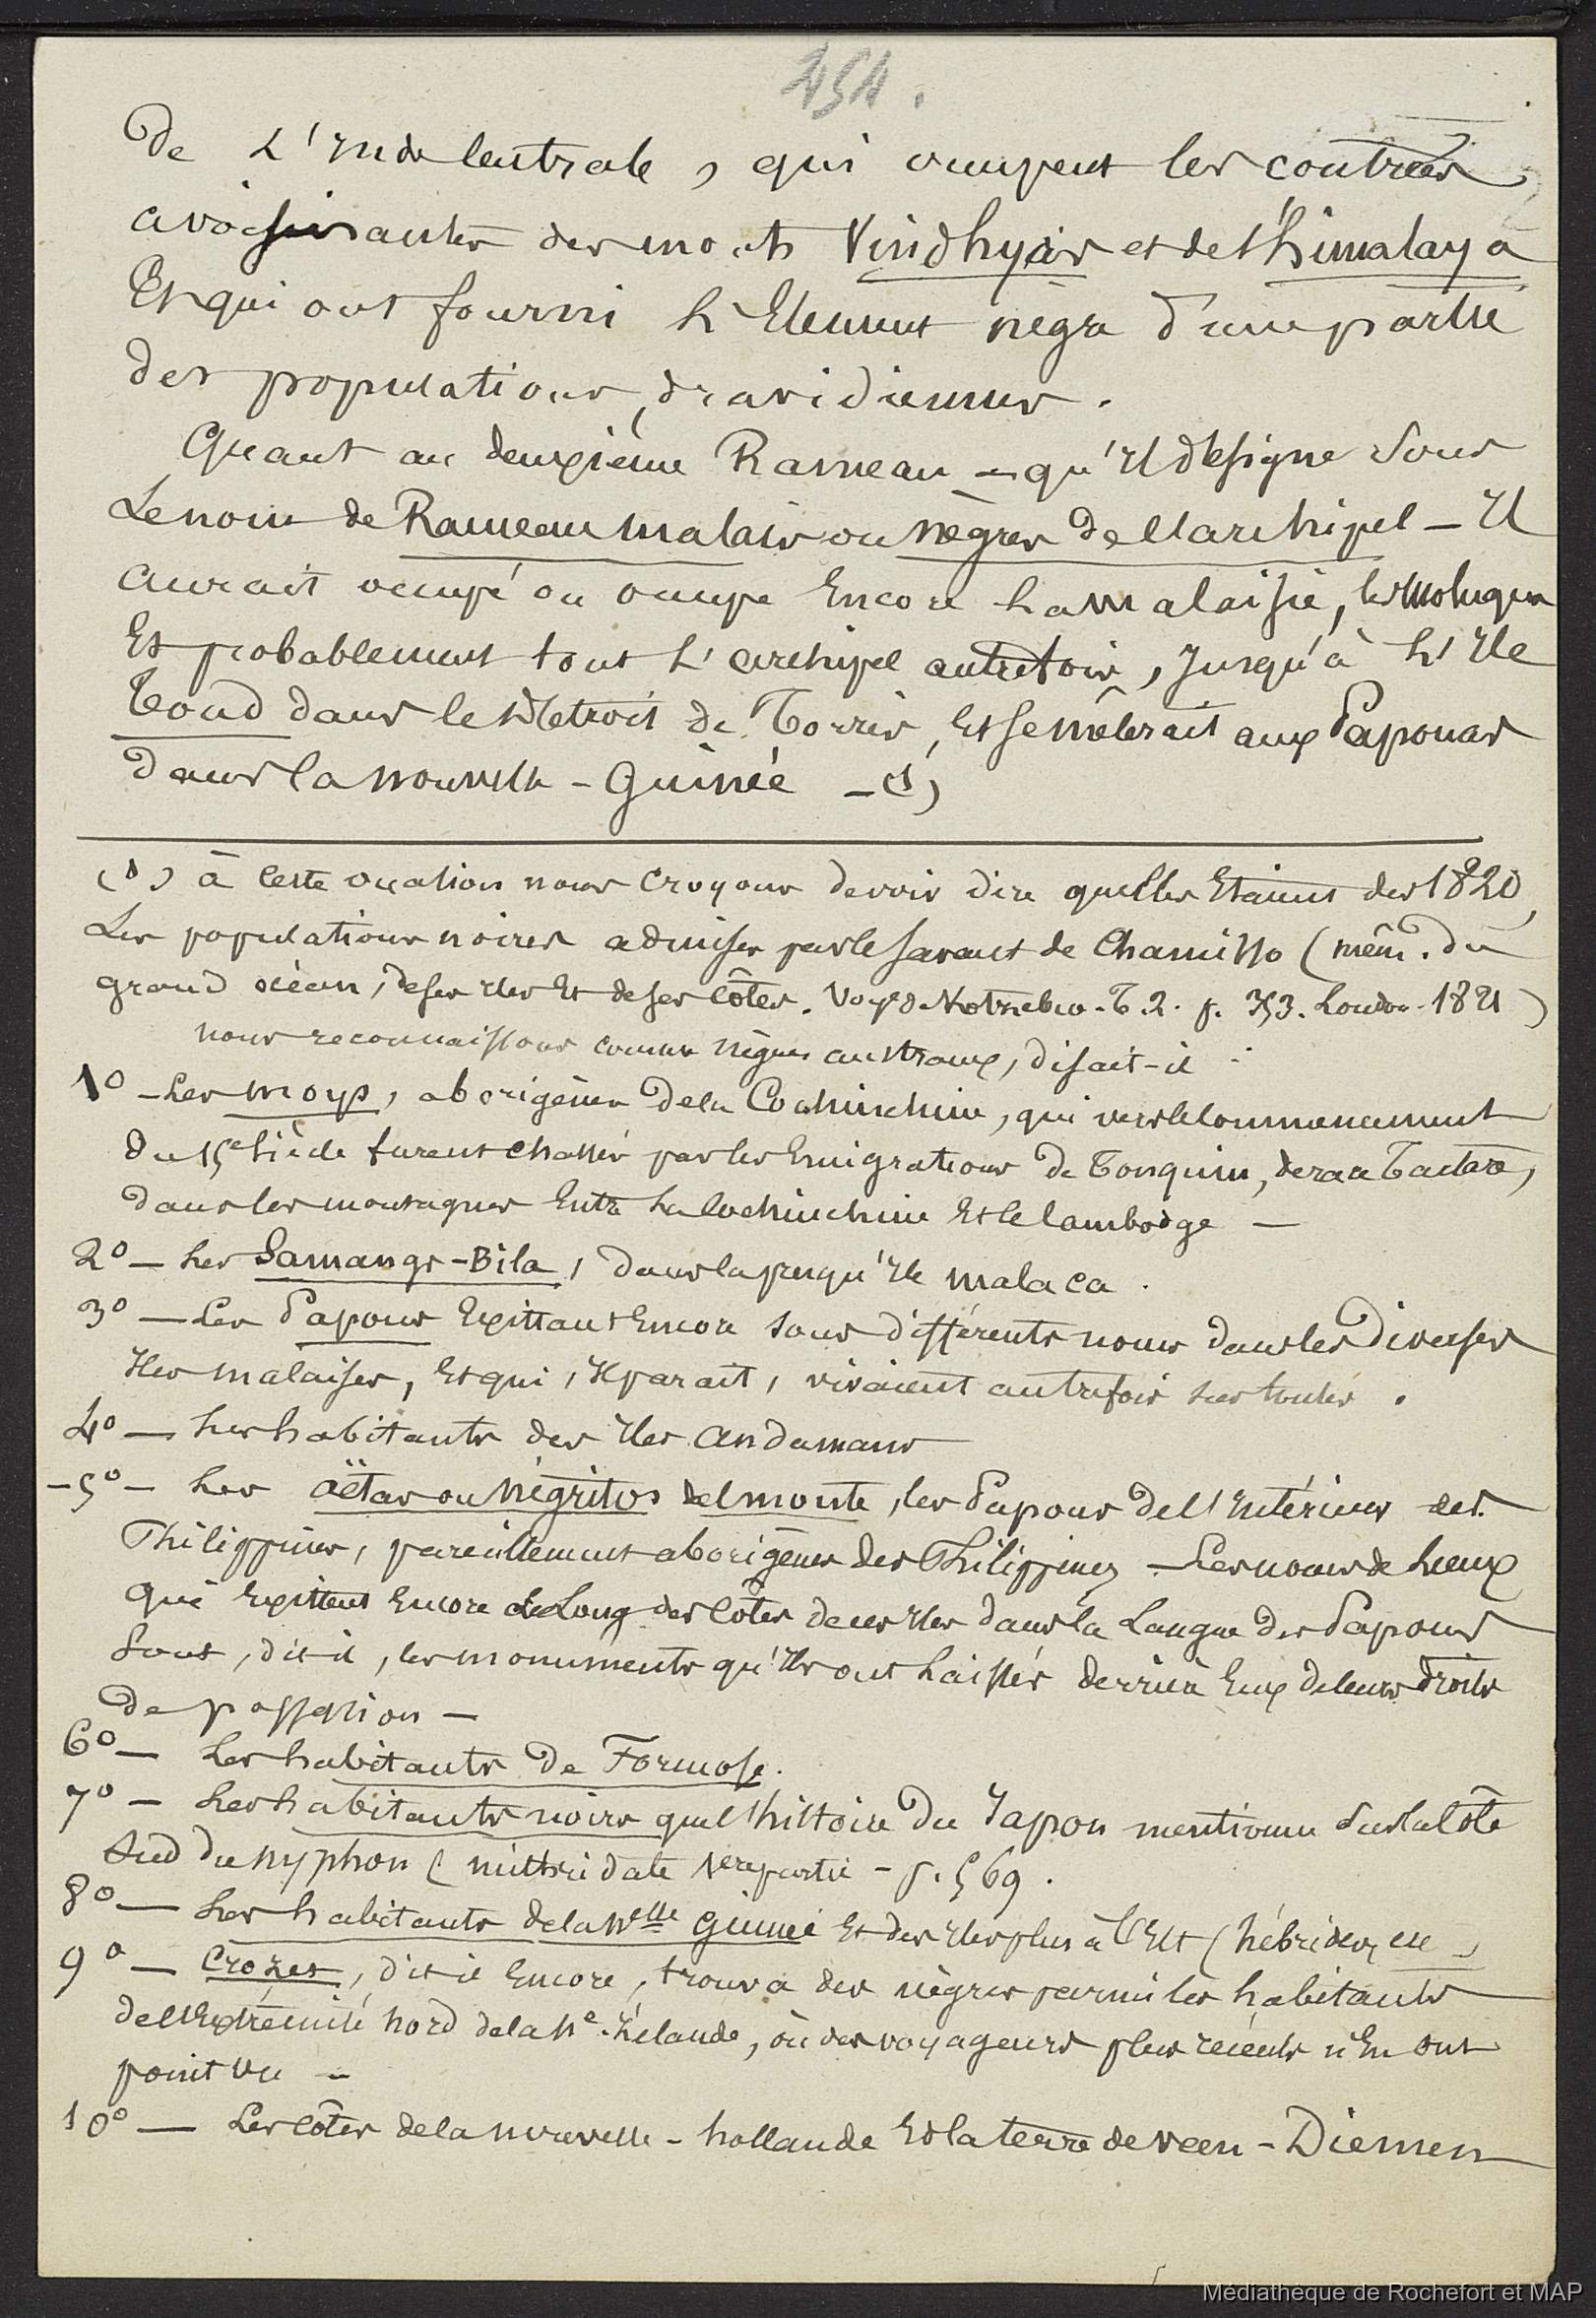 454.
De L'Inde Centrale, qui occupent les contrées
avoisinantes des monts Vindhyas et de l'himalaya
Et qui ont fourni L'Element nègre d'une partie
des populations dravidiennes.
Quant au deuxième Rameau - qu'Il désigne sous
Le nom de Rameau malais ou nègres de l'archipel - Il
aurait occupé ou occupe Encore La malaisie, les Moluques
Et probablement tout L'archipel autrefois, Jusqu'à L'Ile
Toud dans le Détroit de Torrès, Et se mêlerait aux Papouas
dans la nouvelle-Guinée - (1)
(1) à cette occasion nous croyons devoir dire quelles Etaient des 1820,
Les populations noires admises par le savant de Chamisso (mém. du
grand océan, de ses Iles Et de ses côtes. Voye de Kotzebue. T. 2. p. 353. London. 1821)
nous reconnaissons comme nègres austraux, disait-il :
1° - Les moys, aborigènes de la Cochinchine, qui vers le Commencement
du 15e siècle furent chassés par les Emigrations de Tonquin, de race Tartare,
dans les montagnes Entre La Cochinchine Et le Cambodge -
2° - Les Samangs-Bila, dans la presqu'Ile malaca.
3° - Les Papous Existant Encore sous différents noms dans les diverses
Iles malaises, Et qui, Il parait, vivaient autrefois sur toutes.
4° - Les habitants des Iles andamans
- 5° - Les aëtas ou négritos del monte, les Papous de l'Intérieur des
Philippines, pareillement aborigènes des Philippines - Les noms de Lieux
qui Existent Encore le Long des côtes de ces Iles dans la Langue des Papous
Sont, dit-il, les monuments qu'Ils ont Laissés derrière Eux de leurs droits
de possession -
6° - Les habitants de Formose.
7° - Les habitants noirs que l'histoire du Japon mentionne sur la côte
Sud du nyphon (mithridate 1ere partie - p. 569.
8° - Les habitants de la Nelle Guinée Et des Iles plus à l'Est (hébrides, etc -)
9° - Crozet, dit-il Encore, trouva des nègres parmi les habitants
de l'Extrémité nord de la Ne. Zélande, où des voyageurs plus récents n'En ont
point vu -
10° - Les côtes de la nouvelle-hollande Et la terre de Veen-Diemen
Médiathèque de Rochefort et MAP